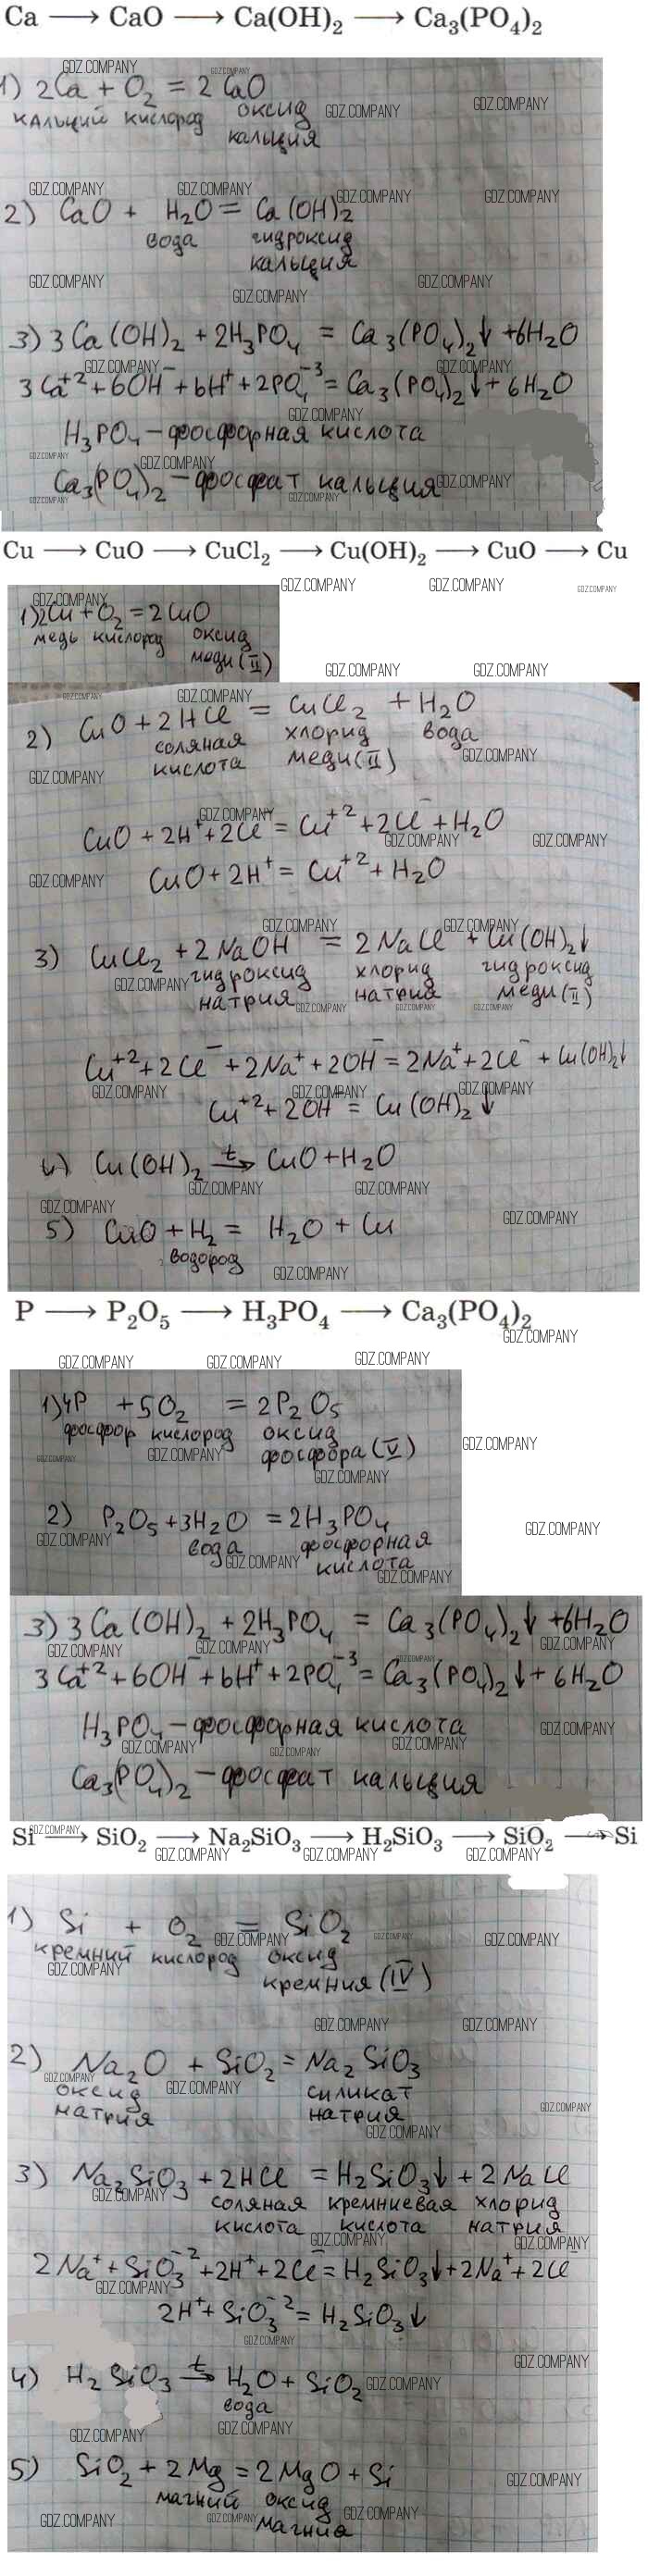 Ca → CaO → Ca(OH)₂ → Ca₃(PO₄)₂
GDZ.COMPANY
1) 2Ca + O₂ = 2CaO
кальций кислород оксид
кальция
2) CaO + H₂O = Ca(OH)₂
вода гидроксид
кальция
3) 3Ca(OH)₂ + 2H₃PO₄ = Ca₃(PO₄)₂↓ + 6H₂O
3Ca⁺² + 6OH⁻ + 6H⁺ + 2PO₄⁻³ = Ca₃(PO₄)₂↓ + 6H₂O
H₃PO₄ – фосфорная кислота
Ca₃(PO₄)₂ – фосфат кальция
Cu → CuO → CuCl₂ → Cu(OH)₂ → CuO → Cu
1) 2Cu + O₂ = 2CuO
медь кислород оксид
меди (II)
2) CuO + 2HCl = CuCl₂ + H₂O
соляная хлорид вода
кислота меди (II)
CuO + 2H⁺ + 2Cl⁻ = Cu⁺² + 2Cl⁻ + H₂O
CuO + 2H⁺ = Cu⁺² + H₂O
3) CuCl₂ + 2NaOH = 2NaCl + Cu(OH)₂↓
гидроксид хлорид гидроксид
натрия натрия меди (II)
Cu⁺² + 2Cl⁻ + 2Na⁺ + 2OH⁻ = 2Na⁺ + 2Cl⁻ + Cu(OH)₂↓
Cu⁺² + 2OH⁻ = Cu(OH)₂↓
4) Cu(OH)₂ →t CuO + H₂O
5) CuO + H₂ = H₂O + Cu
водород
P → P₂O₅ → H₃PO₄ → Ca₃(PO₄)₂
1) 4P + 5O₂ = 2P₂O₅
фосфор кислород оксид
фосфора (V)
2) P₂O₅ + 3H₂O = 2H₃PO₄
вода фосфорная
кислота
3) 3Ca(OH)₂ + 2H₃PO₄ = Ca₃(PO₄)₂↓ + 6H₂O
3Ca⁺² + 6OH⁻ + 6H⁺ + 2PO₄⁻³ = Ca₃(PO₄)₂↓ + 6H₂O
H₃PO₄ – фосфорная кислота
Ca₃(PO₄)₂ – фосфат кальция
Si → SiO₂ → Na₂SiO₃ → H₂SiO₃ → SiO₂ → Si
1) Si + O₂ = SiO₂
кремний кислород оксид
кремния (IV)
2) Na₂O + SiO₂ = Na₂SiO₃
оксид силикат
натрия натрия
3) Na₂SiO₃ + 2HCl = H₂SiO₃↓ + 2NaCl
соляная кремниевая хлорид
кислота кислота натрия
2Na⁺ + SiO₃⁻² + 2H⁺ + 2Cl⁻ = H₂SiO₃↓ + 2Na⁺ + 2Cl⁻
2H⁺ + SiO₃⁻² = H₂SiO₃↓
4) H₂SiO₃ →t H₂O + SiO₂
вода
5) SiO₂ + 2Mg = 2MgO + Si
магний оксид
магния